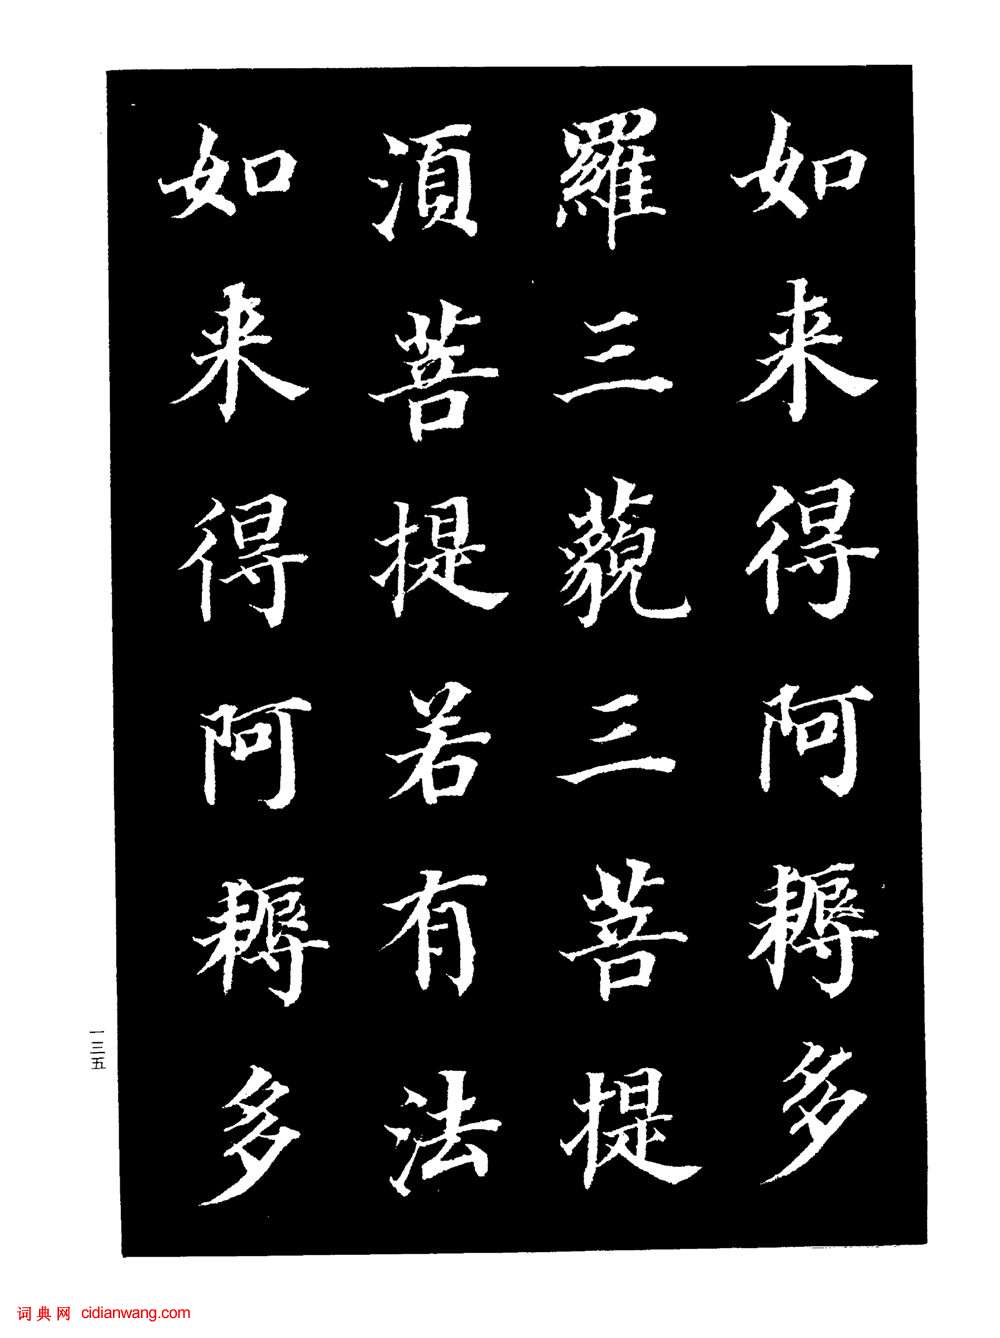 如来得阿耨多
羅三藐三菩提
湏菩提若有法
如来得阿耨多
一三五
词典网 cidianwang.com